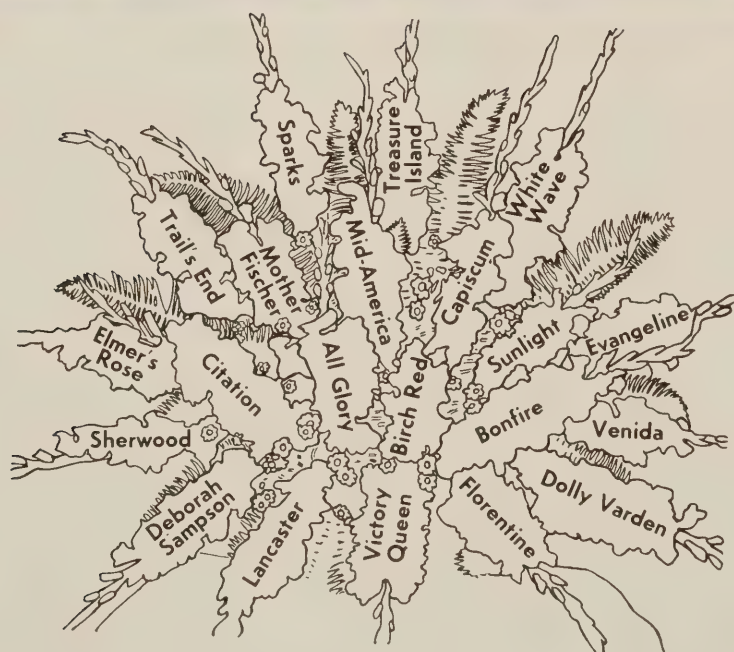 Sparks
Treasure
Island
White
Wave
Trail's End
Mother
Fischer
Mid-America
Capiscum
Elmer's
Rose
Citation
All Glory
Birch Red
Sunlight
Evangeline
Sherwood
Bonfire
Venida
Deborah
Sampson
Lancaster
Victory
Queen
Florentine
Dolly Varden